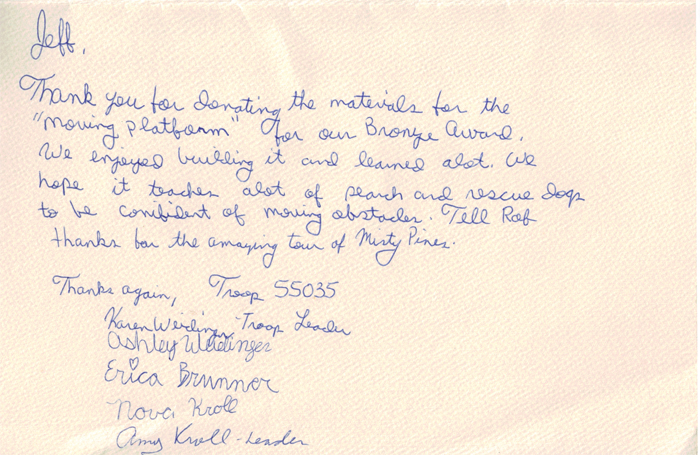 Jeff,
Thank you for donating the materials for the
"moving platform" for our Bronze Award.
We enjoyed building it and learned alot. We
hope it teaches alot of search and rescue dogs
to be confident of moving obstacles. Tell Rob
thanks for the amazing tour of Misty Pines.
Thanks again, Troop 55035
Karen Weidinger Troop Leader
Ashley Weidinger
Erica Brunner
Nova Kroll
Amy Kroll-Leader